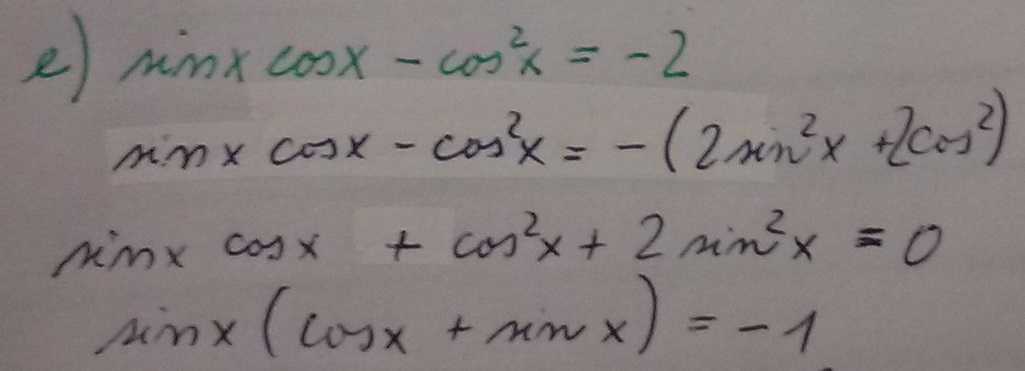 e) sinx cosx - cos²x = -2
sinx cosx - cos²x = -(2sin²x + 2cos²)
sinx cosx + cos²x + 2 sin²x = 0
sinx (cosx + sinx) = -1